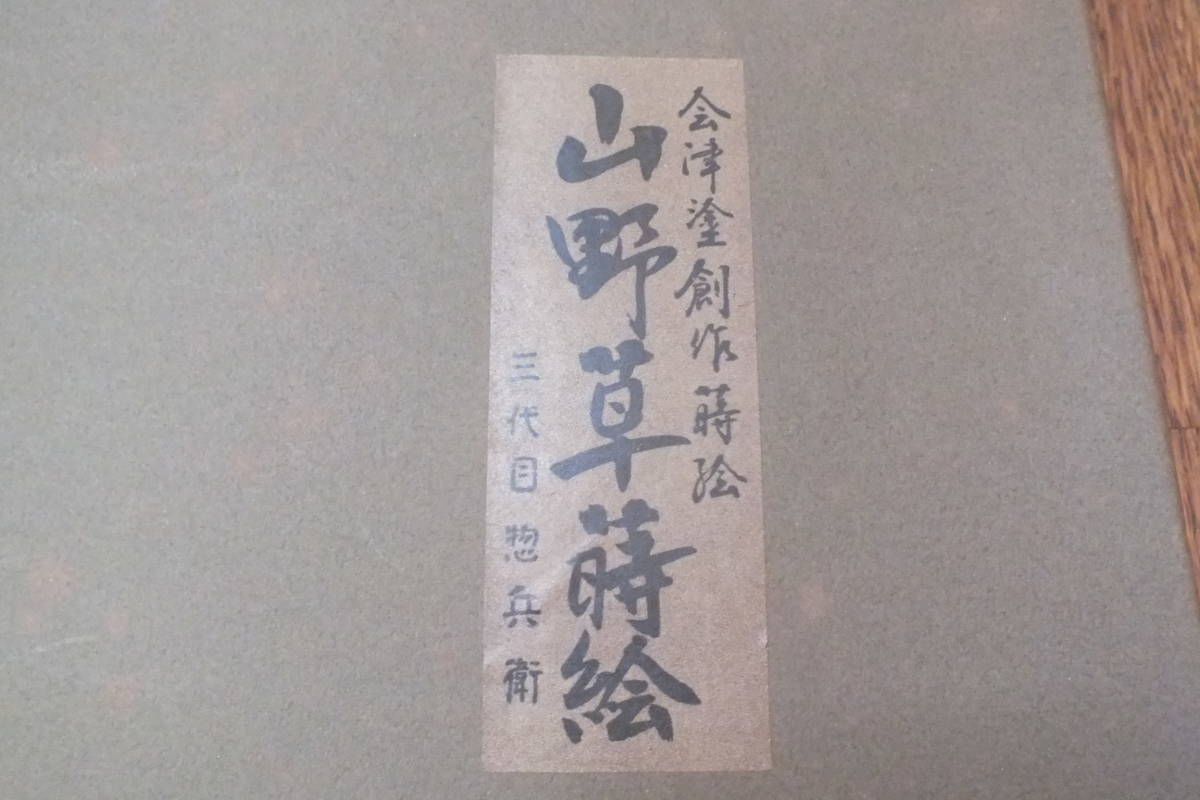 会津塗創作蒔絵
山野草蒔絵
三代目惣兵衛